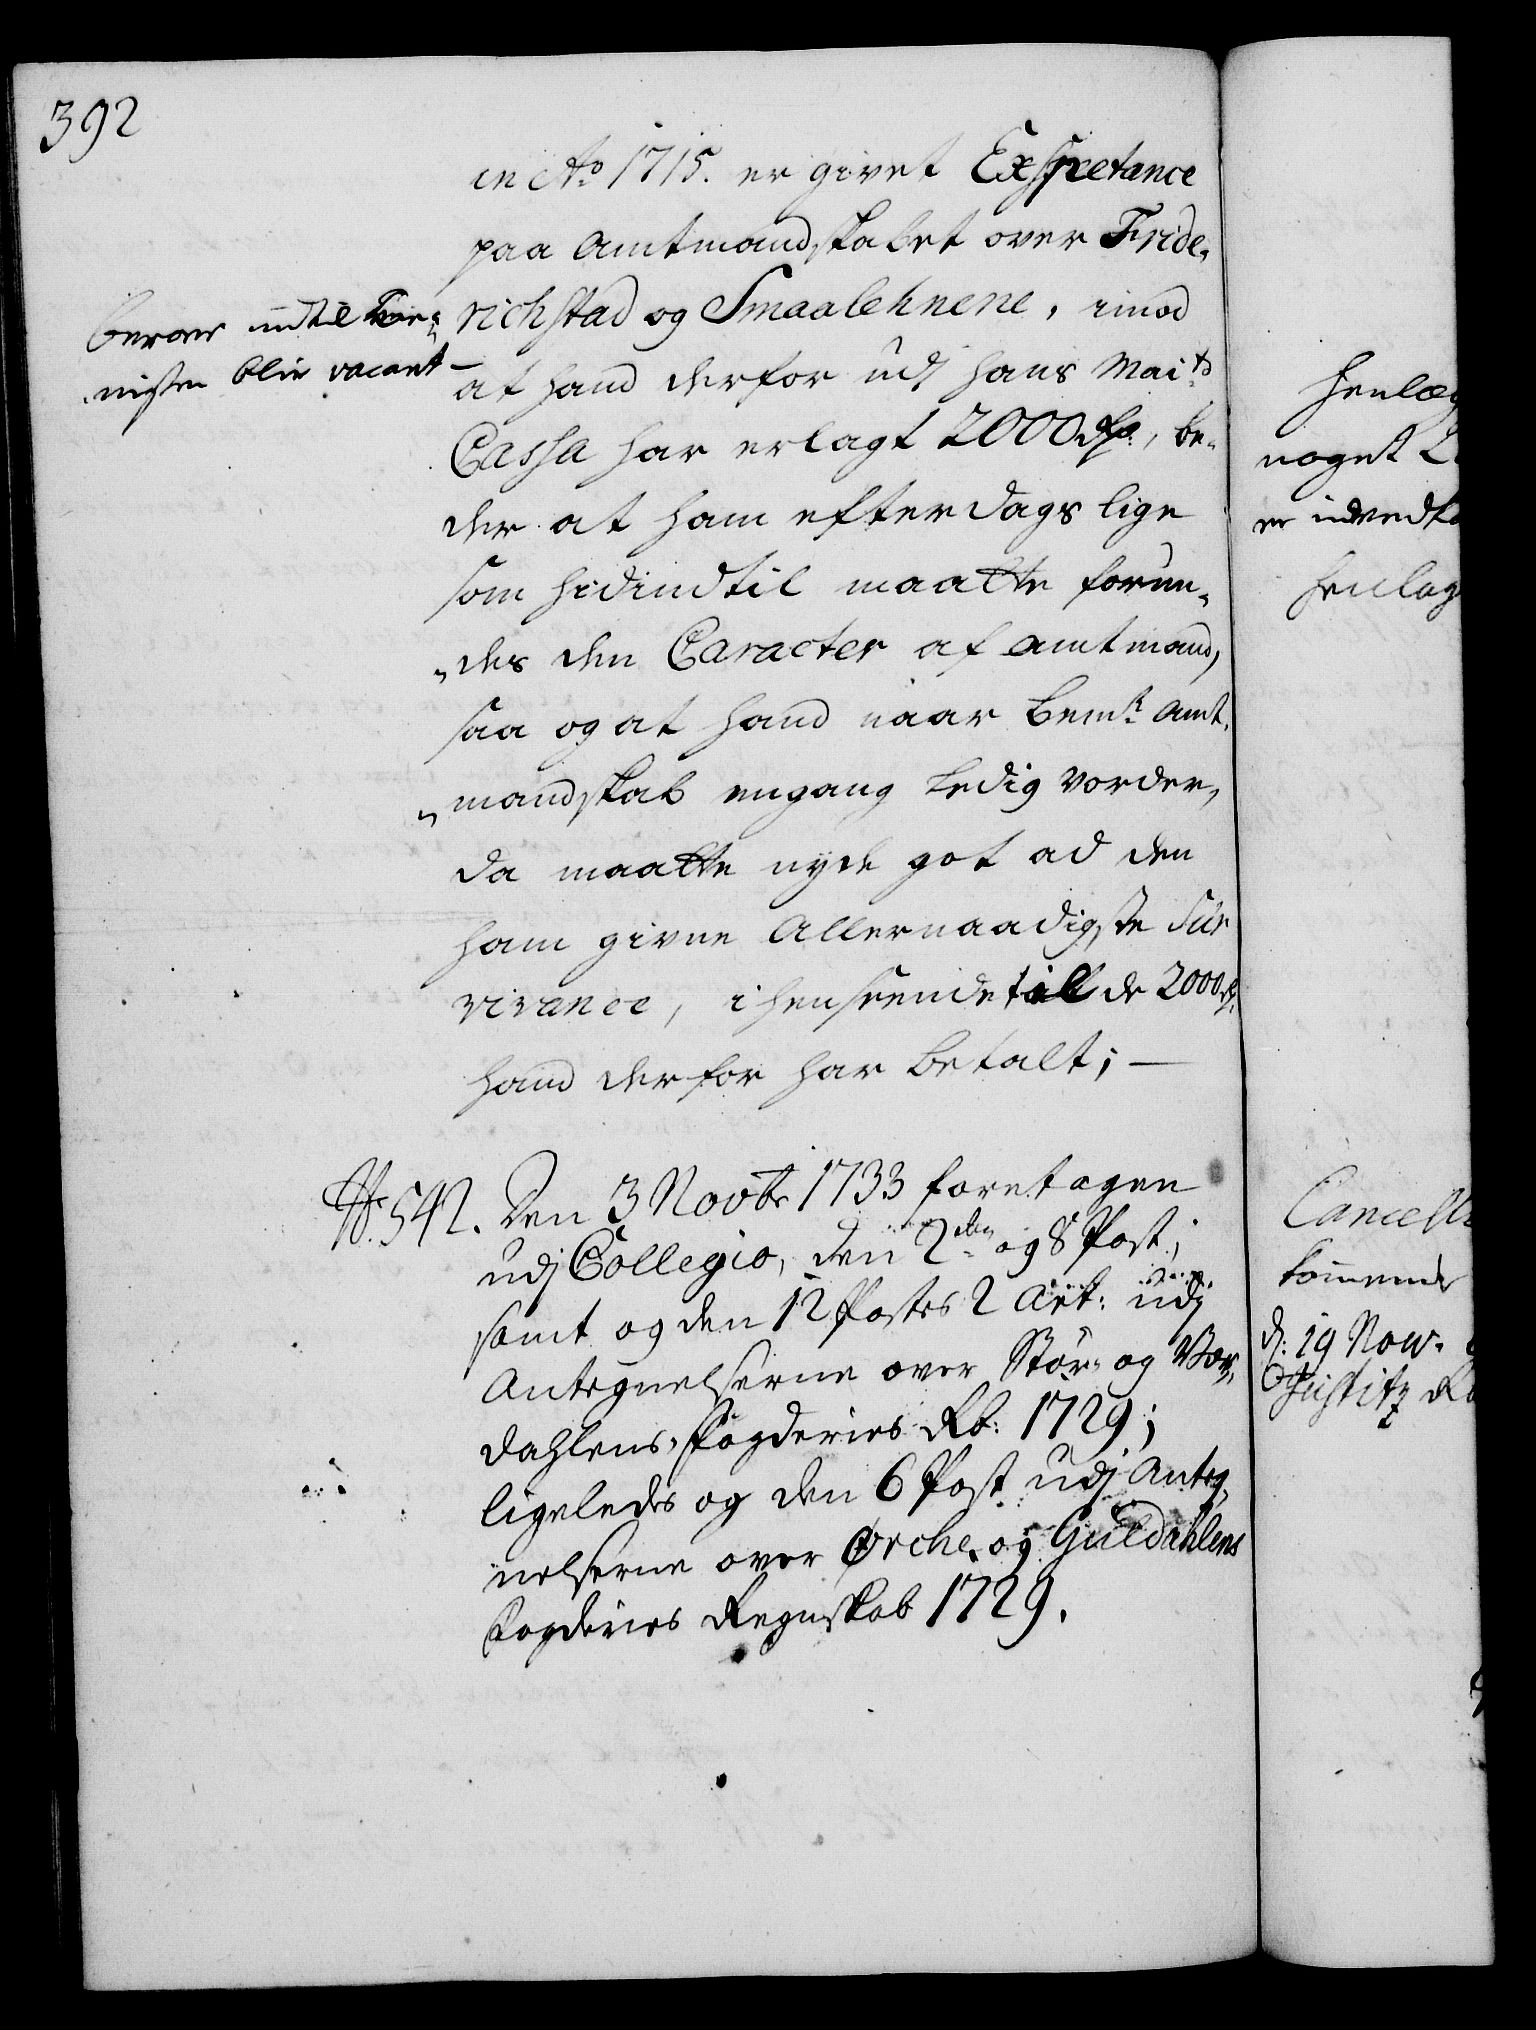 392
in Aº 1715. er givet Exspectance
paa Amtmandskabet over Fride-
richstad og Smaalehnene, imod
at hand derfor udj hans Maits
Cassa har erlagt 2000 rdr, be-
der at ham efterdags lige
som hidindtil maatte forun-
des den Caracter af Amtmand,
saa og at hand naar bemte Amt-
mandskab engang ledig vorder,
da maatte nyde got ad den
ham givne Allernaadigste Sur
vivance, i henseende til de 2000 rdr
hand derfor har betalt; —
beroer indtil Tie-
nisten bliv vacant
No. 542. Den 3 Novbr 1733 foretagen
udj Collegio, den 2den og 8 Post,
samt og den 12 Postes 2 Art: udj
Antegnelserne over Stør- og Vær-
dahlens Fogderies Rb: 1729;
ligeledes og den 6 Post udj Anteg-
nelserne over Ørche- og Guldahlens
Fogderies Regnskab 1729.
henlæg
noget
er indvedt
henlag
Cancell
kommende
d: 19 Nov.
Justitz